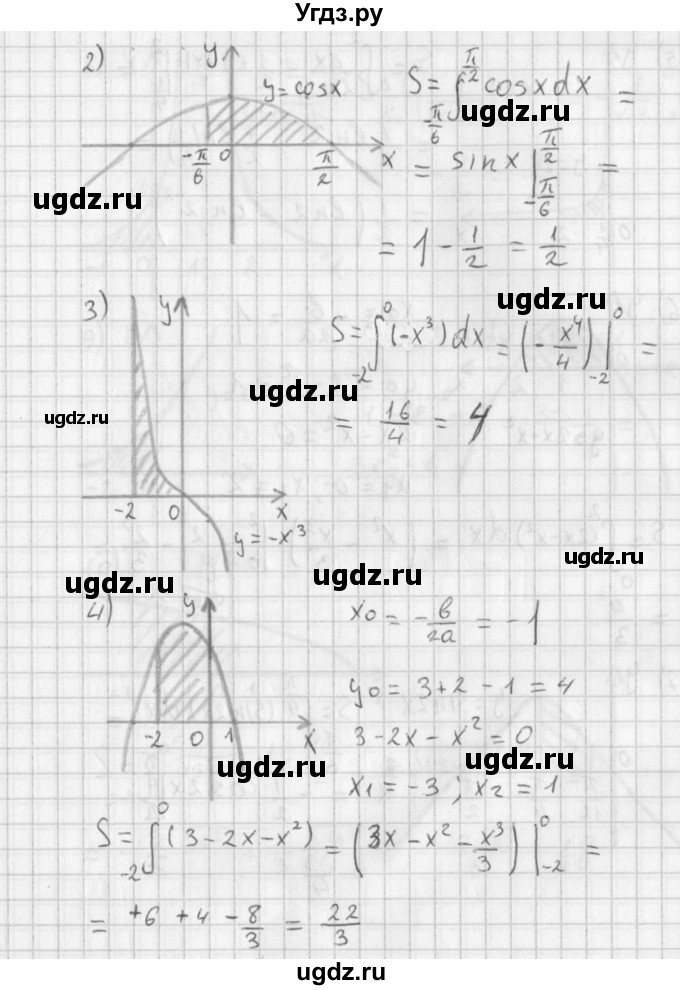 Угдз.ру
2)
y
y = cosx
-π/6 0 π/2 x
S = ∫_{-π/6}^{π/2} cosxdx =
= sinx |_{-π/6}^{π/2} =
= 1 - 1/2 = 1/2
ugdz.ru
ugdz.ru
ugdz.ru
3)
y
-2 0 x
y = -x³
S = ∫_{-2}^{0} (-x³)dx = (-x⁴/4) |_{-2}^{0} =
= 16/4 = 4
ugdz.ru
ugdz.ru
ugdz.ru
ugdz.ru
ugdz.ru
ugdz.ru
4)
y
-2 0 1 x
x₀ = -в/2a = -1
y₀ = 3+2-1 = 4
3-2x-x² = 0
x₁ = -3 ; x₂ = 1
ugdz.ru
ugdz.ru
S = ∫_{-2}^{0} (3-2x-x²) = (3x-x²-x³/3) |_{-2}^{0} =
= +6 +4 - 8/3 = 22/3
ugdz.ru